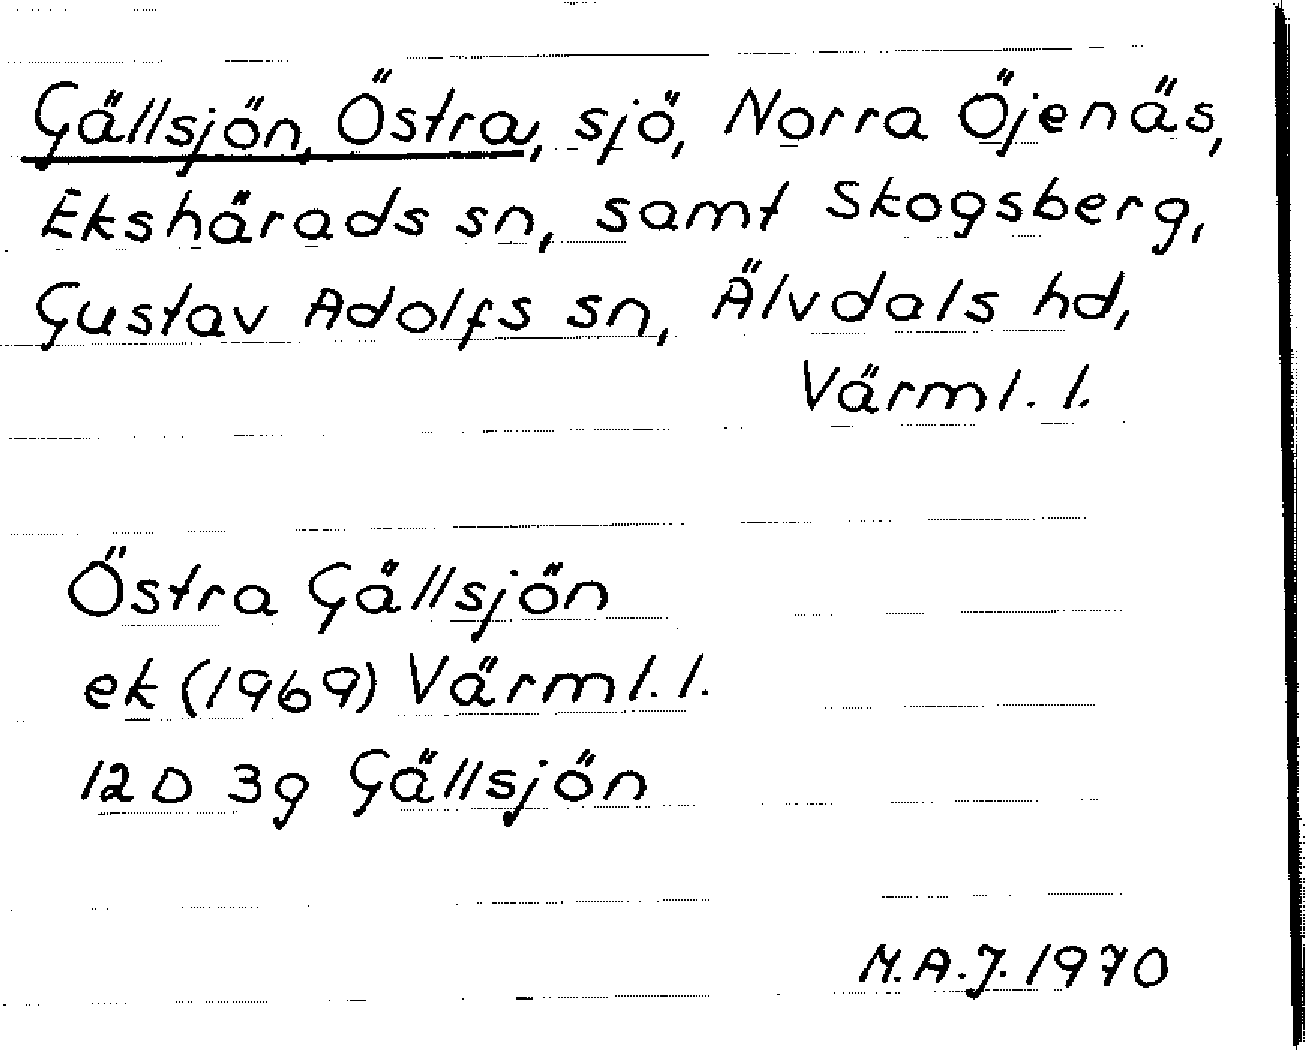 Gällsjön, Östra, sjö, Norra Öjenäs,
Ekshärads sn, samt Skogsberg,
Gustav Adolfs sn, Älvdals hd,
Värml. l.
Östra Gällsjön
ek (1969) Värml. l.
12 D 3g Gällsjön
M.A.J. 1970